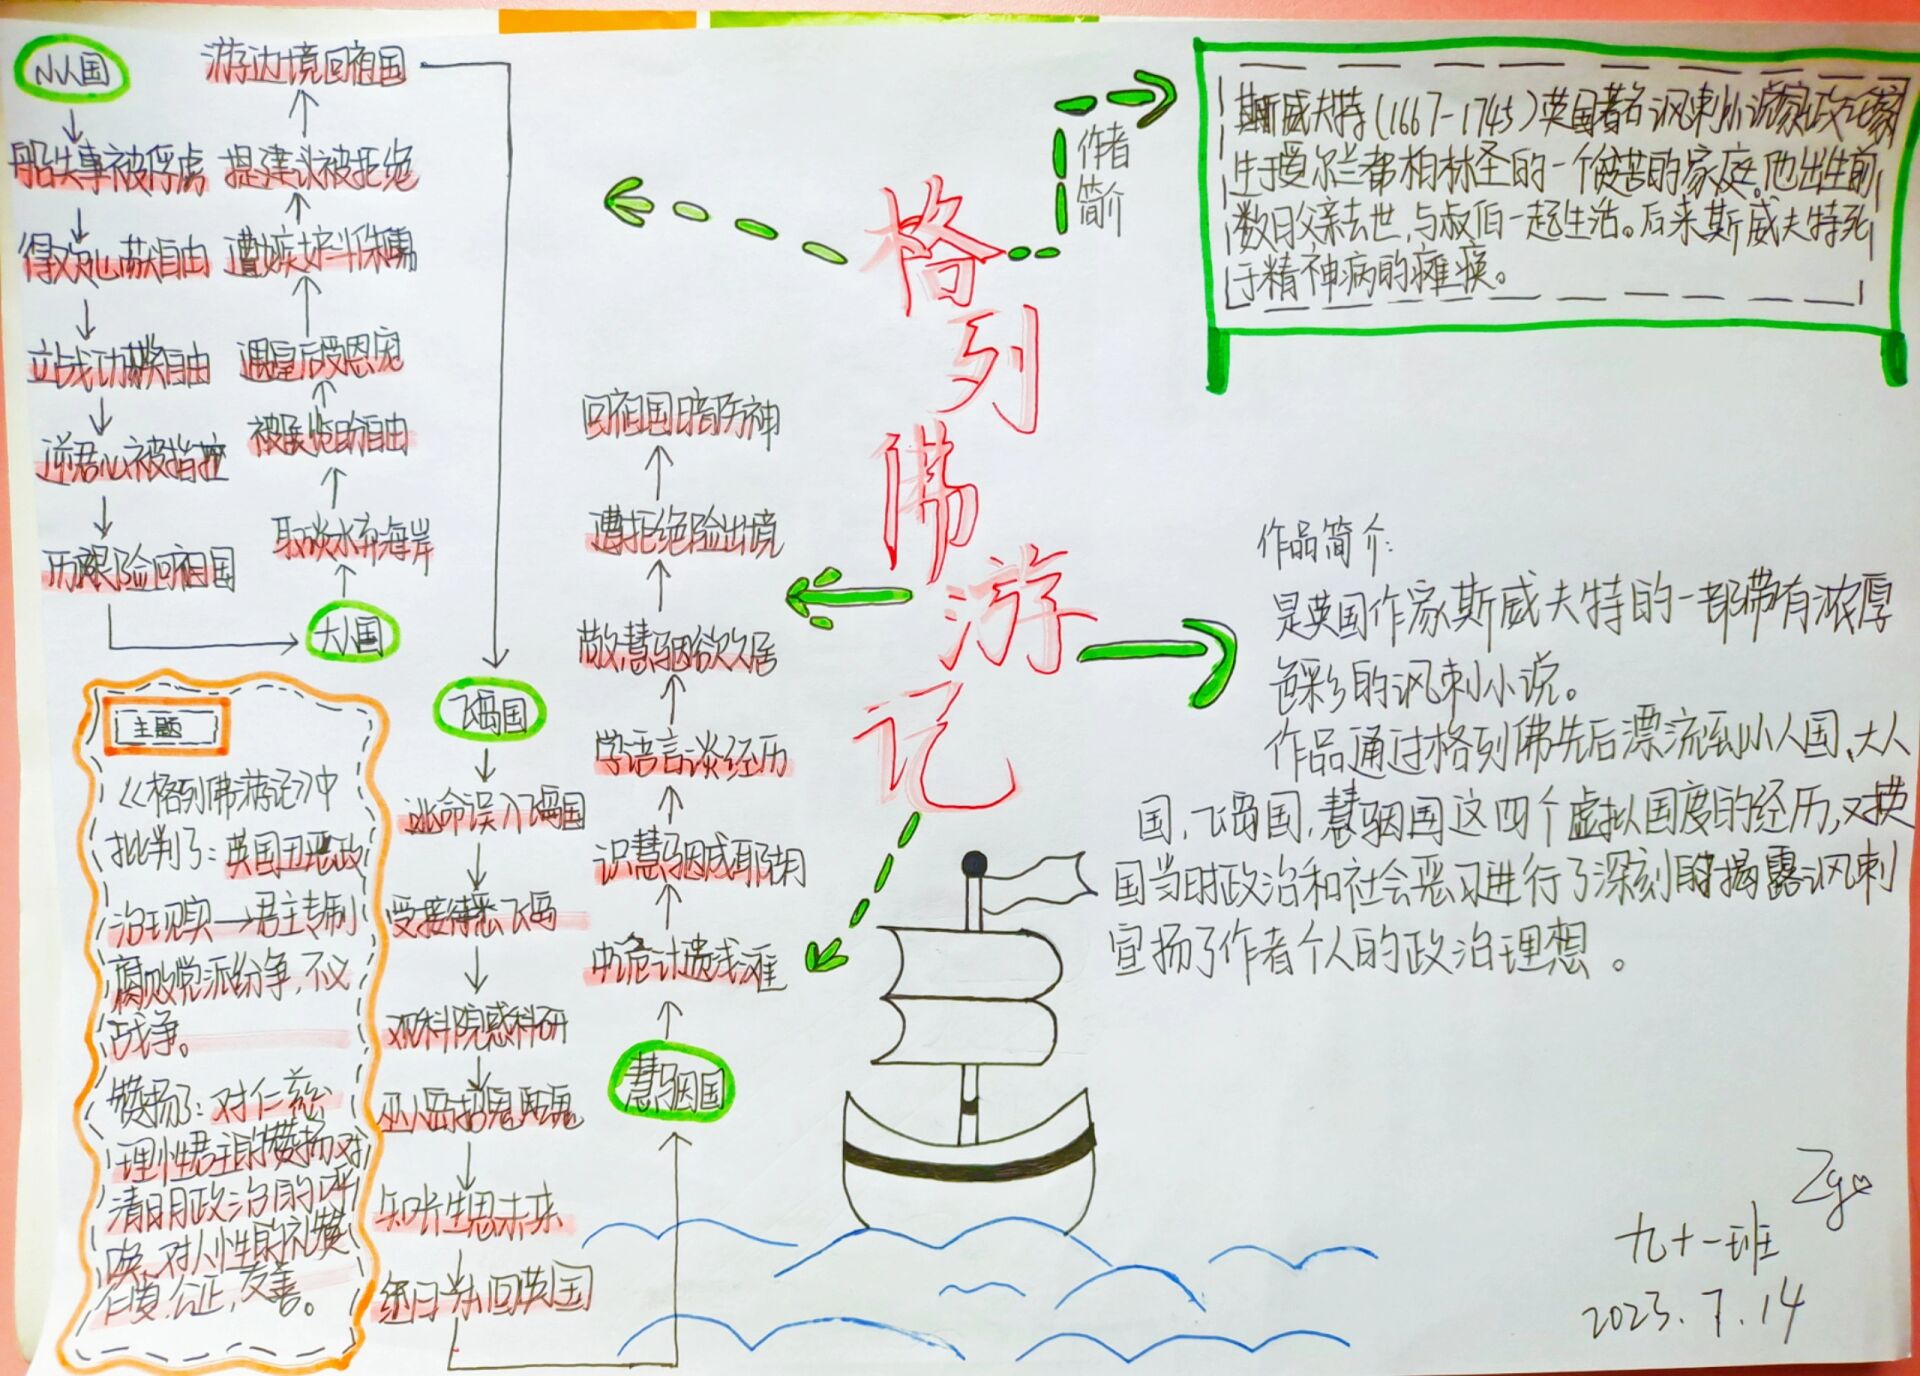 格列佛游记
小人国
船失事被俘虏
得欢心获自由
立战功获自由
逆君心被指控
历艰险回祖国
大人国
取淡水弃海岸
被展览盼自由
遇皇后受恩宠
遭嫉妒斗侏儒
提建议被拒绝
游边境回祖国
飞岛国
逃命误入飞岛国
受接待悉飞岛
观科院惑科研
巫人岛招鬼魂
知长生思未来
经日本回英国
慧骃国
中危计遗浅滩
识慧骃成耶胡
学语言谈经历
敬慧骃欲久居
遭拒绝险出境
回祖国暗伤神
主题
《格列佛游记》中
批判了:英国丑恶政
治现实→君主专制
腐败党派纷争,不义
战争。
赞扬了:对仁慈
理性君主的赞扬对
清明政治的呼
唤,对人性的礼赞
仁爱.公正,友善。
作者
简介
斯威夫特(1667-1745)英国著名讽刺小说家政治家
生于爱尔兰都柏林圣的一个贫苦的家庭。他出生前
数日父亲去世,与叔伯一起生活。后来斯威夫特死
于精神病的瘫痪。
作品简介:
是英国作家斯威夫特的一部带有浓厚
色彩的讽刺小说。
作品通过格列佛先后漂流到小人国、大人
国,飞岛国,慧骃国这四个虚拟国度的经历,对英
国当时政治和社会恶习进行了深刻的揭露讽刺
宣扬了作者个人的政治理想。
九十一班
2023.7.14